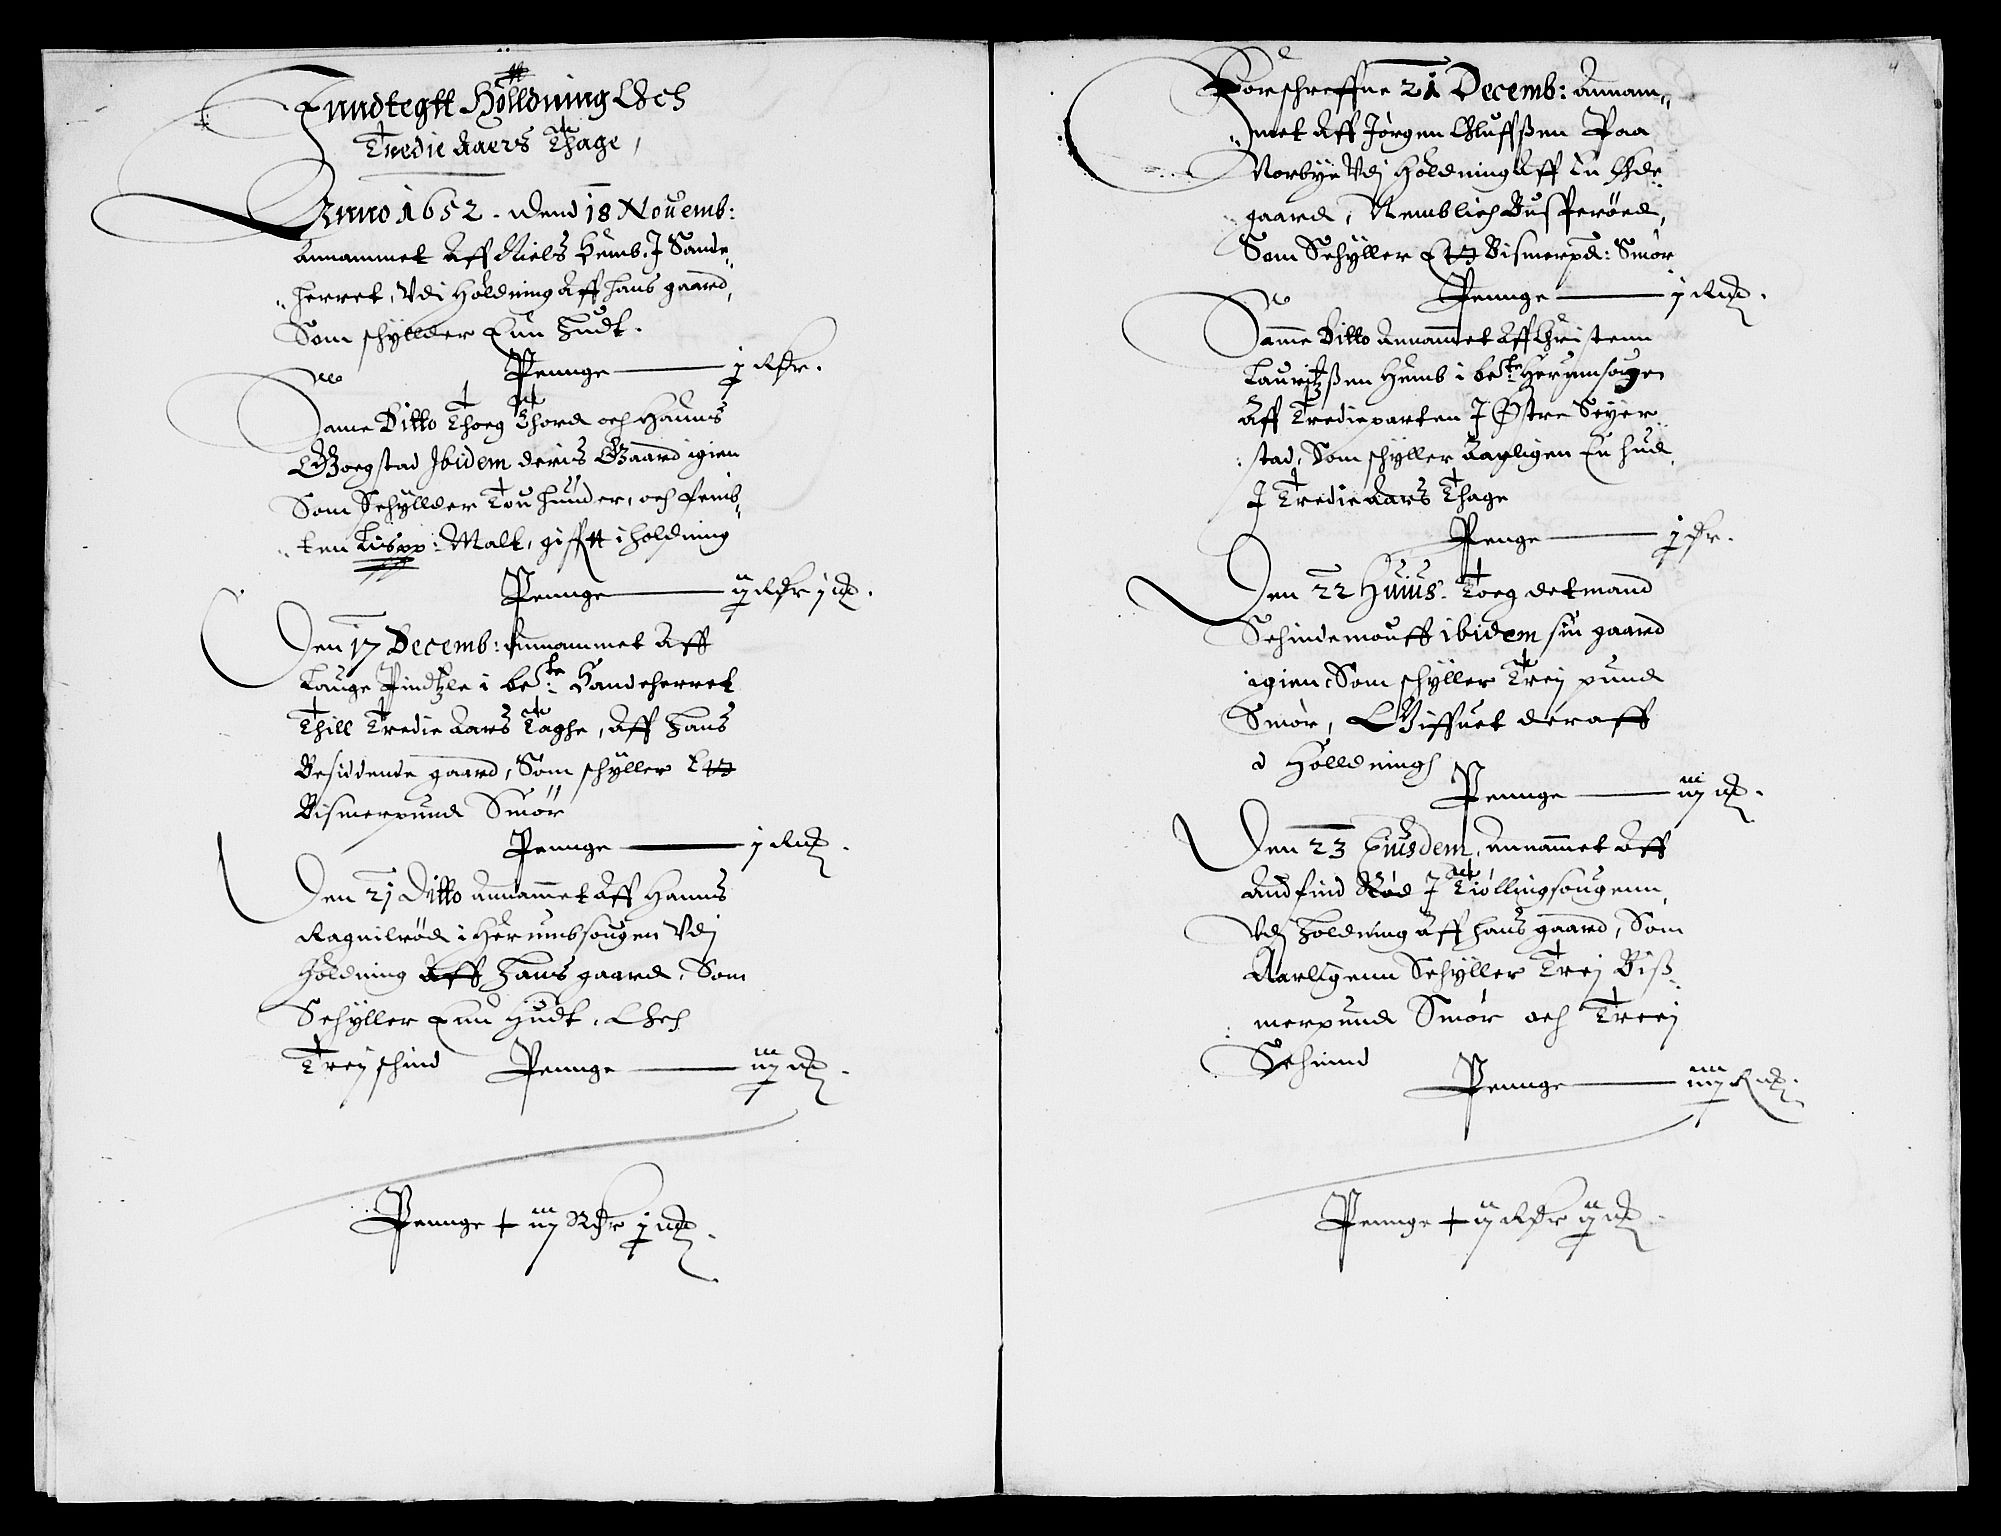 Inndtegtt Hölldning Och
Tredie Aaers Thage,
Anno 1652. dend 18 Nouemb:
Annammet Aff Niels Hemb. J Sande
herret, Vdi Holdning Aff hans gaard,
Som schyllder Een Hudt.
Pennge — j Rdr.
Same Ditto Thoeg Thord och Hanns
Goegstad Ibidem deris Gaard igien
Som Schyllder Tou huder, och femb
ten Lispp: Malt, gifftt i holdning
Pennge — ij Rdr j
Den 17 Decemb: Annammet Aff
Lauge Pindtzle i be.te Sandeherret
Thill Tredie Aars Taghe, Aff Hans
Besiddende gaard, Som schyller Et
Bismerpund Smör
Pennge —
Den 21 Ditto Annammet Aff Hanns
Ragnilröd i Herumbsougen Vdj
Holdning Aff Hans gaard, Som
Schyller Een Hudt, Och
Trej schind Pennge —
Pennge + iij Rdr j
4
Forschreffne 21 Decemb: Annam
met Aff Jörgen Oluffßen Paa
Norbye Vdj Holdning Aff En Øde
gaard, Nemblich Busperöed,
Som Schyller Et Bismerpd: Smör
Pennge —
Samme Ditto Annammet Aff Christenn
Lauritzßen Humb i be.te Herumsogen
Aff Tredieparten J Østre Seyer
stad, Som schyller Aarligen En hud
J Tredie Aars Thage
Penge — j
Den 22 Huius. Toeg detmand
Schindemouff ibidem sin gaard
igien Som schyller Trej pund
Smör, Giffuet deraff
J Hölldning
Pennge —
Den 23 Eiusdem, Annammet Aff
Andfind Röd J Tiöllingsougenn,
Vdj Holdning Aff hans gaard, Som
Aarligenn Schyller Trej Biß
merpund Smör och Treej
Schinnd
Pennge —
Pennge + ij Rdr ij